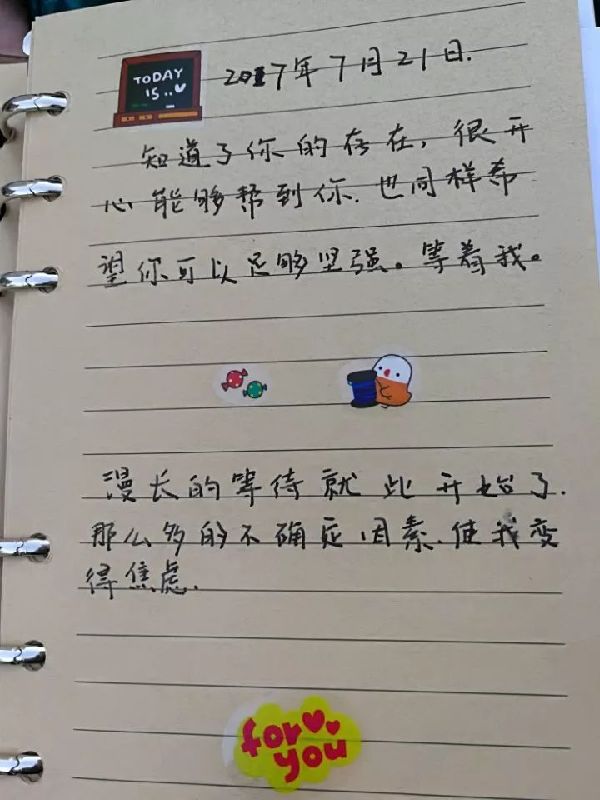 TODAY
IS...
2017年7月21日.
知道了你的存在，很开
心能够帮到你.也同样希
望你可以足够坚强。等着我。
漫长的等待就此开始了.
那么多的不确定因素.使我变
得焦虑.
for
you